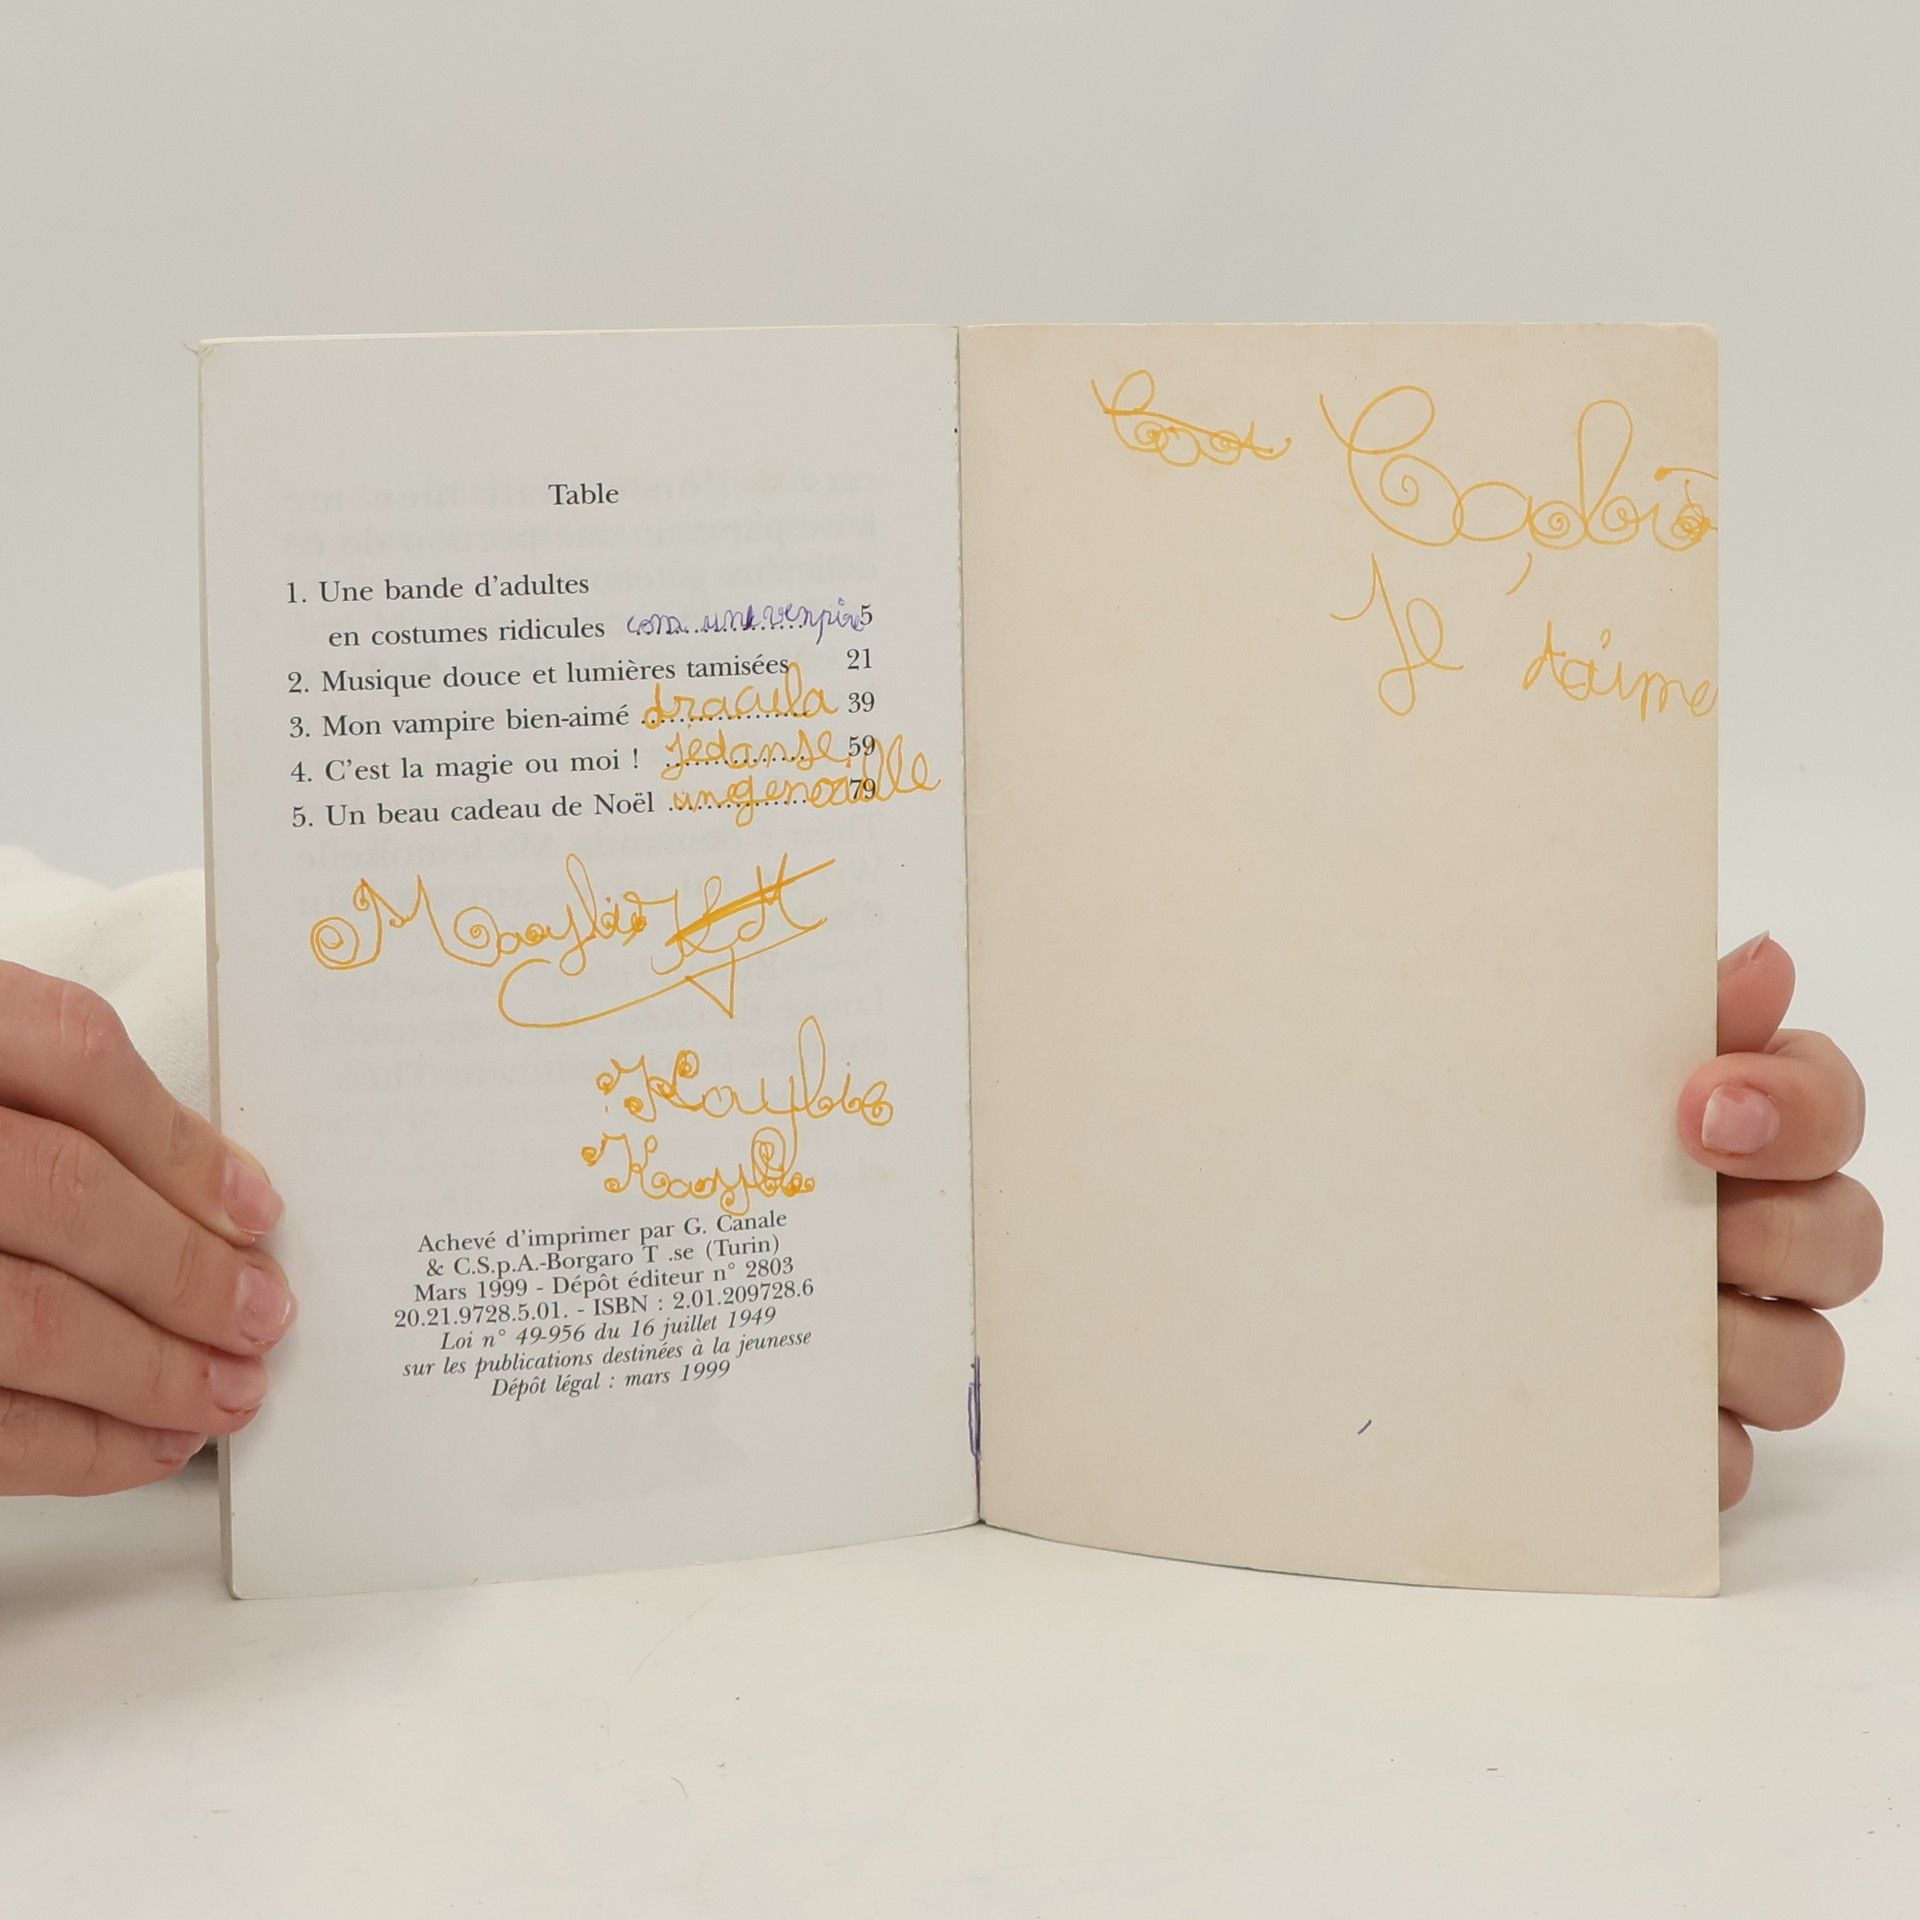 Table
1. Une bande d'adultes
en costumes ridicules 5
2. Musique douce et lumières tamisées 21
3. Mon vampire bien-aimé .................. dracula 39
4. C'est la magie ou moi ! ............... je danse 59
5. Un beau cadeau de Noël ............... 79
Achevé d'imprimer par G. Canale
& C.S.p.A.-Borgaro T .se (Turin)
Mars 1999 - Dépôt éditeur n° 2803
20.21.9728.5.01. - ISBN : 2.01.209728.6
Loi n° 49-956 du 16 juillet 1949
sur les publications destinées à la jeunesse
Dépôt légal : mars 1999
Je t'aime